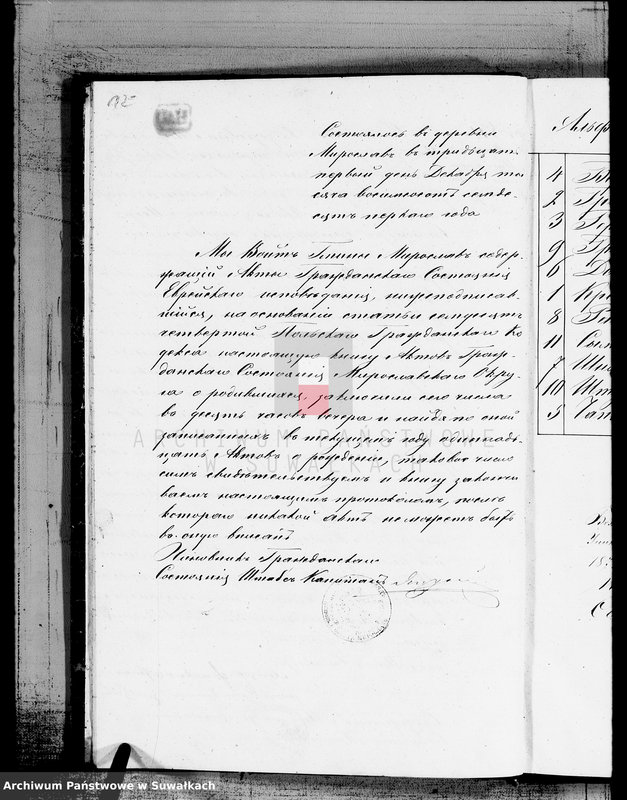 Состоялось въ деревни
Мирославъ въ тридцать
первый день Декабря ты
сяча восемьсотъ семьде
сятъ перваго года
Мы Войтъ Гмины Мирославъ содер-
жащій Акты Гражданскаго Состоянія
Еврейскаго исповѣданія, нижеподписав
шійся, на основаніи статьи семьдесятъ
четвертой Польскаго Гражданскаго Ко
декса настоящую книгу Актовъ Граж-
данскаго Состоянія Мирославскаго Окру-
га о родившихся, сего числа
въ десять часовъ вечера и найдя по оной
записанныхъ въ текущемъ году одиннад-
цать Актовъ о рожденіи, таковое число
симъ свидѣтельствуемъ и книгу заключи
ваемъ настоящимъ протоколомъ, послѣ
котораго никакой актъ не можетъ быть
въ оную внесенъ
Чиновникъ Гражданскаго
Состоянія Штабсъ Капитанъ
4
2
3
9
6
1
8
11
7
10
5
ARCHIWUM PAŃSTWOWE
W SUWAŁKACH
Archiwum Państwowe w Suwałkach